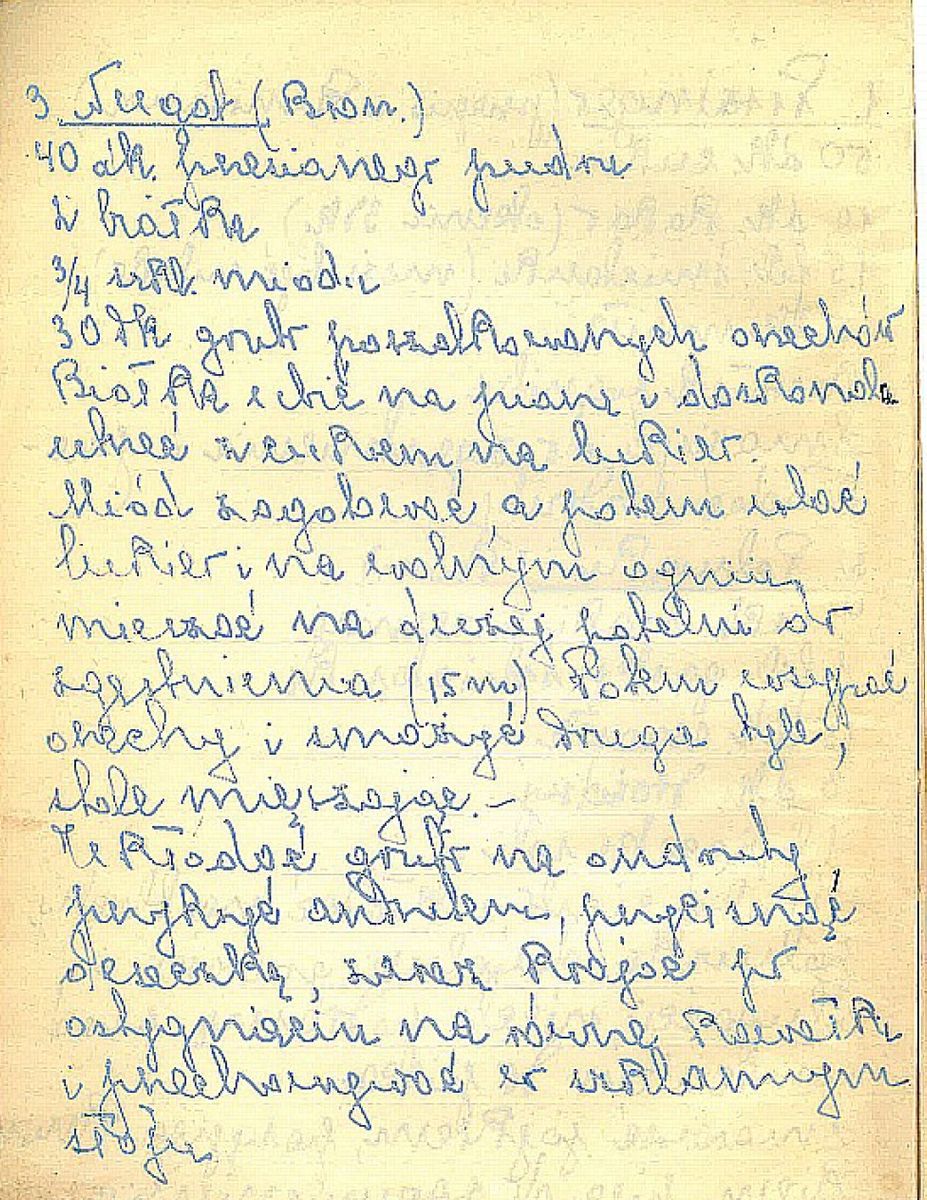 3 Nugat (Bron.)
40 dk. przesianego pudru
2 białka
3/4 szkl. miodu
30 dk grubo poszatkowanych orzechów
Białka ubić na pianę i doskonale
utrzeć z cukrem, na lukier.
Miód zagotować, a potem wlać
lukier i na wolnym ogniu,
mieszać na dużej patelni do
zgęstnienia (15 m) Potem wsypać
orzechy i smażyć drugie tyle,
stale mięszając –
Układać grubo na andruty
przykryć andrutem, przycisnąć
deseczką, zaraz krajać po
ostygnięciu na równe kawałki
i przechowywać w szklannym
słoju.